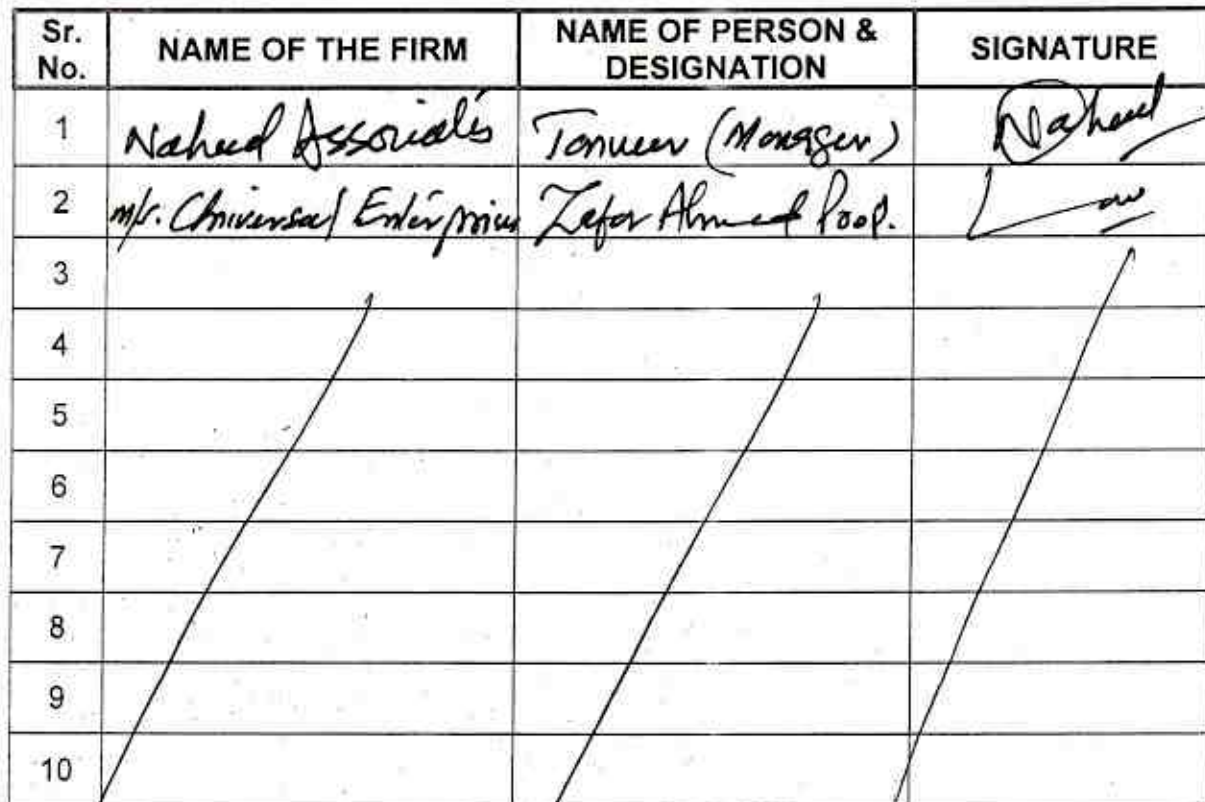 Sr. No. NAME OF THE FIRM NAME OF PERSON & DESIGNATION SIGNATURE
1 Naheed Associates Tanveer (Manager) Naheed
2 M/s. Universal Enterprises Zafar Ahmed Prop.
3
4
5
6
7
8
9
10